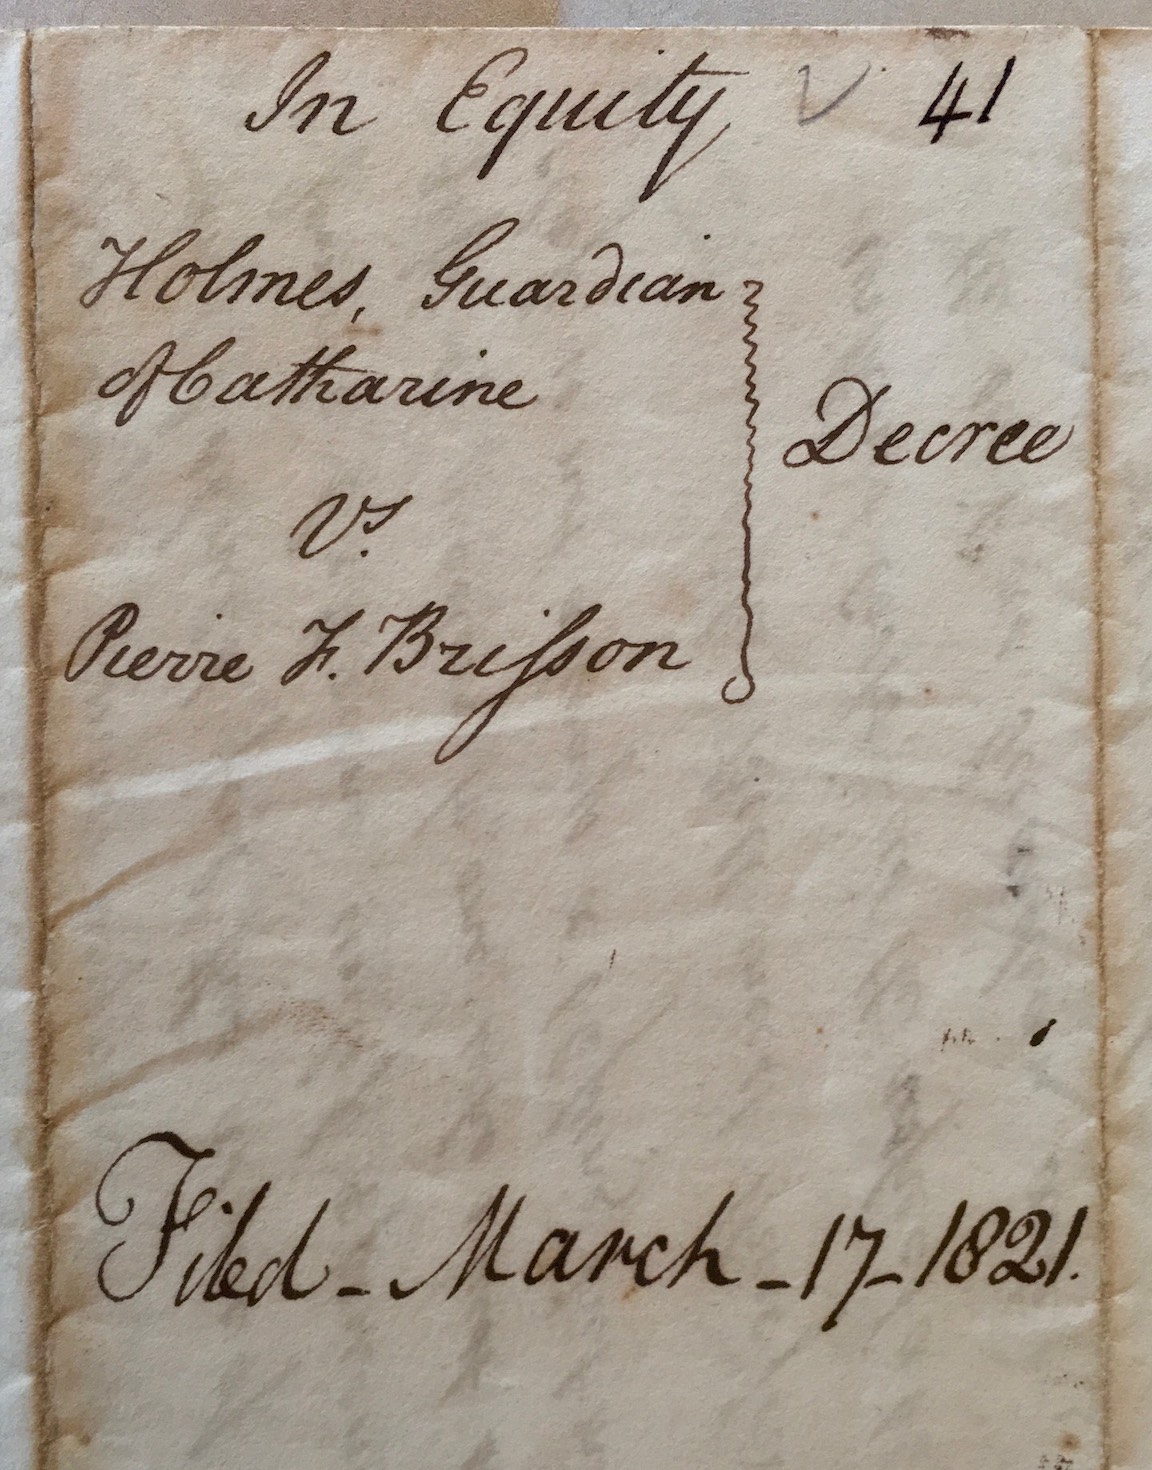 In Equity V 41
Holmes, Guardian
of Catharine
Decree
Vs.
Pierre F. Briſson
Filed - March - 17 - 1821.